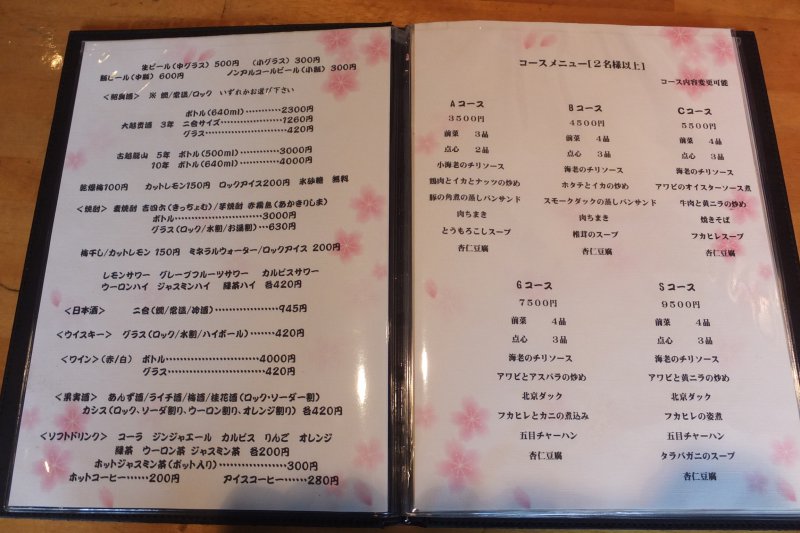 生ビール(中グラス) 500円　(小グラス) 300円
瓶ビール(中瓶) 600円　ノンアルコールビール(小瓶) 300円
<紹興酒>　※ 燗/常温/ロック　いずれかお選び下さい
ボトル(640ml)…………2300円
大越貴酒　3年　二合サイズ…………1260円
グラス…………………420円
古越龍山　5年　ボトル(500ml)………3000円
10年　ボトル(640ml)………4000円
乾燥梅100円　カットレモン150円　ロックアイス200円　氷砂糖　無料
<焼酎>　麦焼酎 吉四六(きっちょむ)/芋焼酎 赤霧島(あかきりしま)
ボトル…………………3000円
グラス(ロック/水割/お湯割)…630円
梅干し/カットレモン 150円　ミネラルウォーター/ロックアイス 200円
レモンサワー　グレープフルーツサワー　カルピスサワー
ウーロンハイ　ジャスミンハイ　緑茶ハイ　各420円
<日本酒>　二合(燗/常温/冷酒)………………945円
<ウイスキー>　グラス(ロック/水割/ハイボール)………420円
<ワイン>(赤/白)　ボトル…………………4000円
グラス…………………420円
<果実酒>　あんず酒/ライチ酒/梅酒/桂花酒(ロック・ソーダー割)
カシス(ロック、ソーダ割り、ウーロン割り、オレンジ割り) 各420円
<ソフトドリンク>　コーラ　ジンジャエール　カルピス　りんご　オレンジ
緑茶　ウーロン茶　ジャスミン茶　各200円
ホットジャスミン茶(ポット入り)…………………300円
ホットコーヒー……200円　アイスコーヒー……280円
コースメニュー[２名様以上]
コース内容変更可能
A コース
3500円
前菜　3品
点心　2品
小海老のチリソース
鶏肉とイカとナッツの炒め
豚の角煮の蒸しパンサンド
肉ちまき
とうもろこしスープ
杏仁豆腐
B コース
4500円
前菜　4品
点心　3品
海老のチリソース
ホタテとイカの炒め
スモークダックの蒸しパンサンド
肉ちまき
椎茸のスープ
杏仁豆腐
C コース
5500円
前菜　4品
点心　3品
海老のチリソース
アワビのオイスターソース煮
牛肉と黄ニラの炒め
焼きそば
フカヒレスープ
杏仁豆腐
G コース
7500円
前菜　4品
点心　3品
海老のチリソース
アワビとアスパラの炒め
北京ダック
フカヒレとカニの煮込み
五目チャーハン
杏仁豆腐
S コース
9500円
前菜　4品
点心　3品
海老のチリソース
アワビと黄ニラの炒め
北京ダック
フカヒレの姿煮
五目チャーハン
タラバガニのスープ
杏仁豆腐